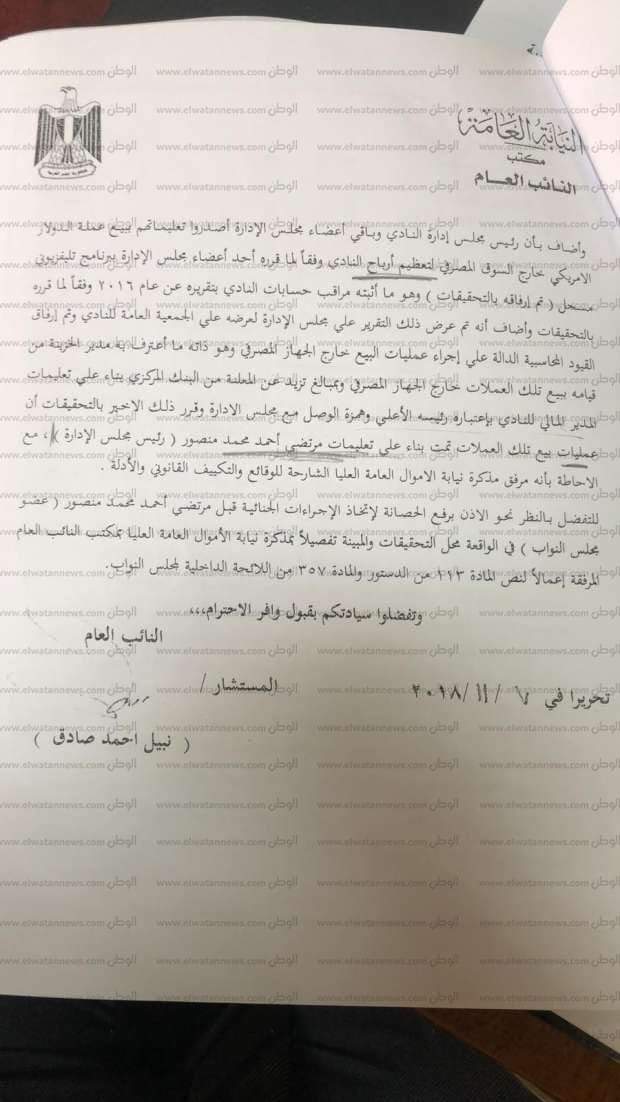 النيابة العامة
مكتب
النائب العام
وأضاف بأن رئيس مجلس إدارة النادي وباقي أعضاء مجلس الإدارة أصدروا تعليماتهم ببيع عملة الدولار
الامريكي خارج السوق المصرفي لتعظيم أرباح النادي وفقاً لما قرره أحد أعضاء مجلس الإدارة ببرنامج تليفزيوني
مسجل ( تم إرفاقه بالتحقيقات ) وهو ما أثبته مراقب حسابات النادي بتقريره عن عام ٢٠١٦ وفقاً لما قرره
بالتحقيقات وأضاف أنه تم عرض ذلك التقرير علي مجلس الإدارة لعرضه علي الجمعية العامة للنادي وتم إرفاق
القيود المحاسبية الدالة علي إجراء عمليات البيع خارج الجهاز المصرفي وهو ذاته ما أعترف به مدير الخزينة من
قيامه ببيع تلك العملات خارج الجهاز المصرفي وبمبالغ تزيد عن المعلنة من البنك المركزي بناء علي تعليمات
المدير المالي للنادي بإعتباره رئيسه الأعلي وهمزة الوصل مع مجلس الادارة وقرر ذلك الاخير بالتحقيقات أن
عمليات بيع تلك العملات تمت بناء علي تعليمات مرتضي أحمد محمد منصور ( رئيس مجلس الإدارة ) ، مع
الاحاطة بأنه مرفق مذكرة نيابة الاموال العامة العليا الشارحة للوقائع والتكييف القانوني والأدلة .
للتفضل بالنظر نحو الاذن برفع الحصانة لإتخاذ الإجراءات الجنائية قبل مرتضي أحمد محمد منصور ( عضو
مجلس النواب ) في الواقعة محل التحقيقات والمبينة تفصيلاً بمذكرة نيابة الأموال العامة العليا بمكتب النائب العام
المرفقة إعمالاً لنص المادة ١١٣ من الدستور والمادة ٣٥٧ من اللائحة الداخلية لمجلس النواب.
وتفضلوا سيادتكم بقبول وافر الاحترام،،،
النائب العام
المستشار /
تحريرا في ٧ / ١١ / ٢٠١٨
( نبيل احمد صادق )
الوطن www.elwatannews.com